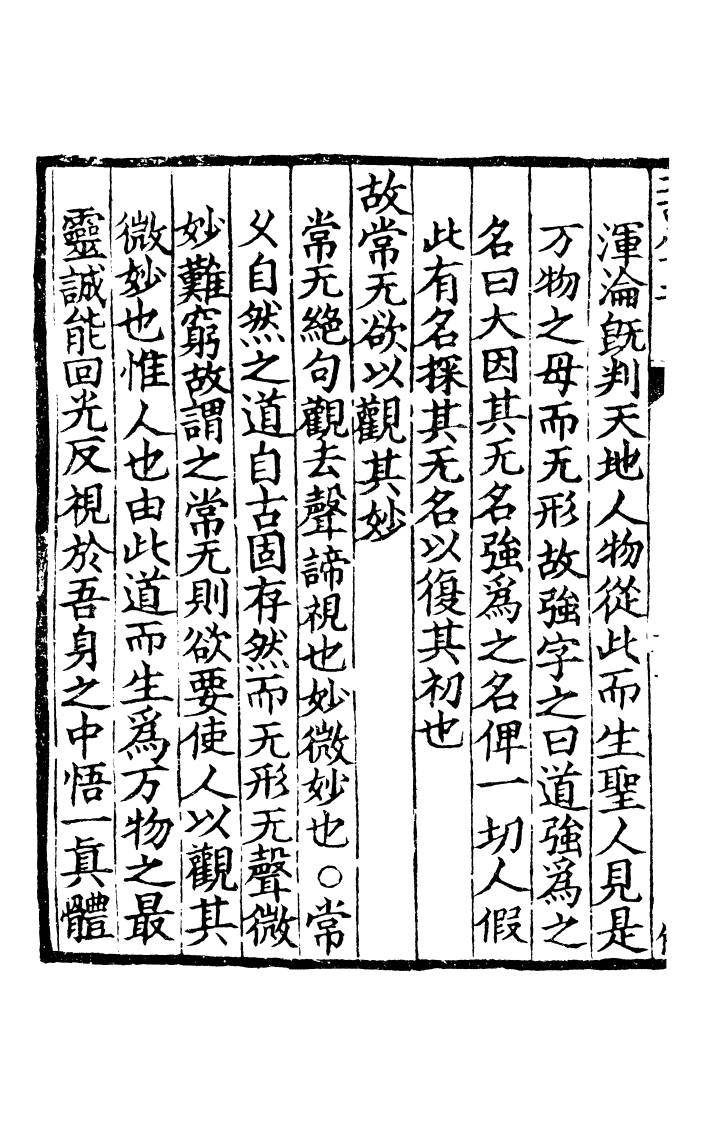 渾淪旣判天地人物從此而生聖人見是
万物之母而无形故強字之曰道強爲之
名曰大因其无名強爲之名俾一切人假
此有名探其无名以復其初也
故常无欲以觀其妙
常无絶句觀去聲諦視也妙微妙也○常
父自然之道自古固存然而无形无聲微
妙難窮故謂之常无則欲要使人以觀其
微妙也惟人也由此道而生爲万物之最
靈誠能回光反視於吾身之中悟一眞體